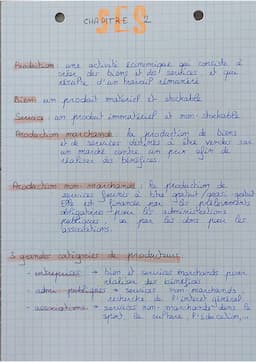 SES
CHAPITRE 2
Production : une activité économique qui consiste à
créer des biens et des services et qui
résulte d'un travail rémunéré
Bien : un produit matériel et stockable
Service : un produit immatériel et non stockable
Production marchande : la production de biens
et de services destinés à être vendus sur
un marché contre un prix afin de
réaliser des bénéfices.
Production non-marchande : la production de
services fournis à titre gratuit/quasi gratuit
Elle est financée par les prélèvements
obligatoires pour les administrations
publiques, ou par les dons pour les
associations.
3 grandes catégories de producteurs
- entreprises → bien et services marchands pour
réaliser des bénéfices
- admi publiques → services non-marchands
recherche de l'intérêt général
- associations → services non-marchands dans le
sport, la culture, l'éducation,...